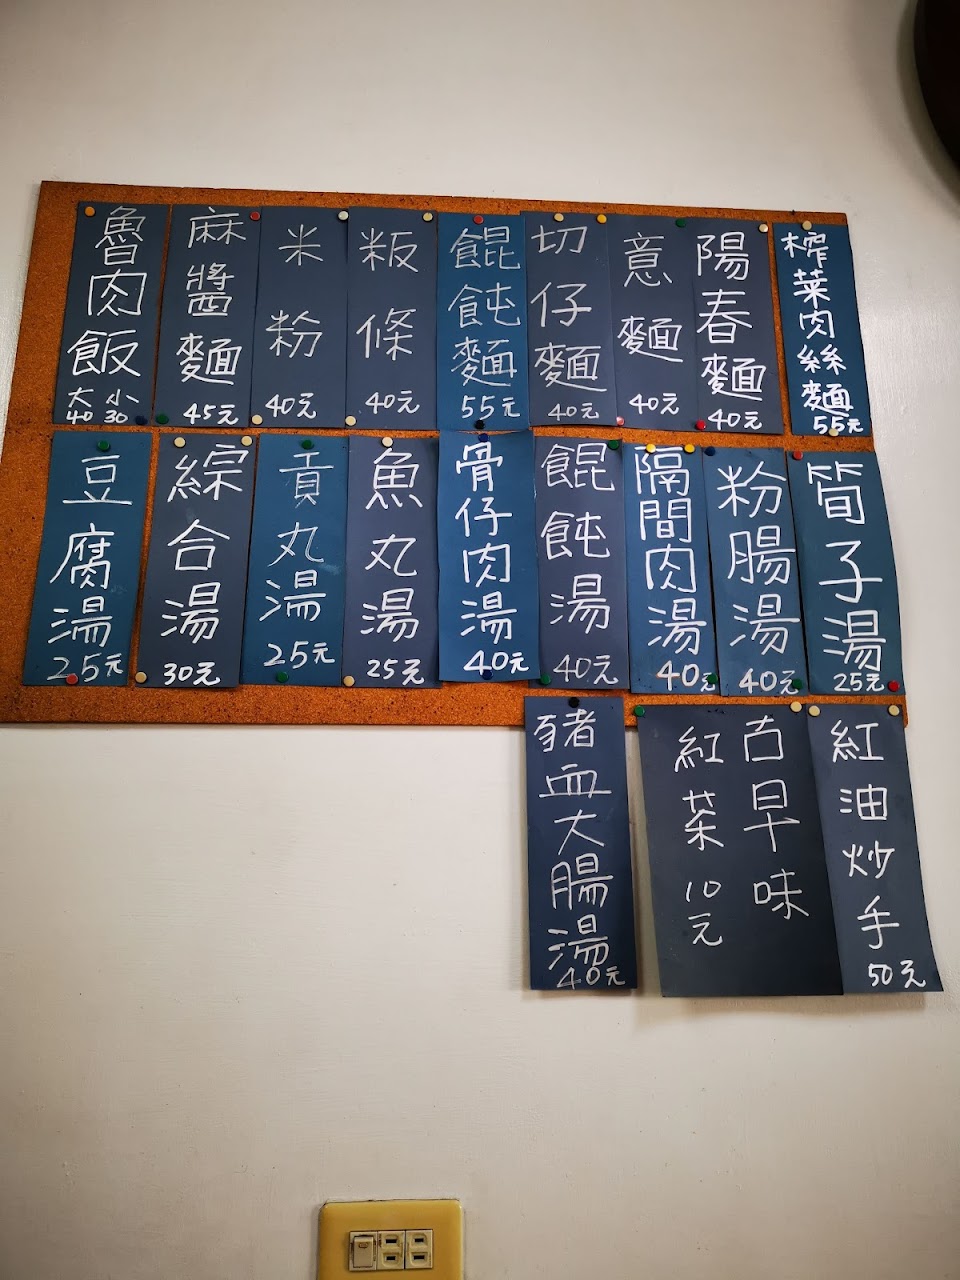 榨菜肉絲麵
55元
陽春麵
40元
意麵
40元
切仔麵
40元
餛飩麵
55元
粄條
40元
米粉
40元
麻醬麵
45元
魯肉飯
大 小
40 30
筍子湯
25元
粉腸湯
40元
隔間肉湯
40元
餛飩湯
40元
骨仔肉湯
40元
魚丸湯
25元
貢丸湯
25元
綜合湯
30元
豆腐湯
25元
紅油炒手
50元
古早味
紅茶10元
豬血大腸湯
40元